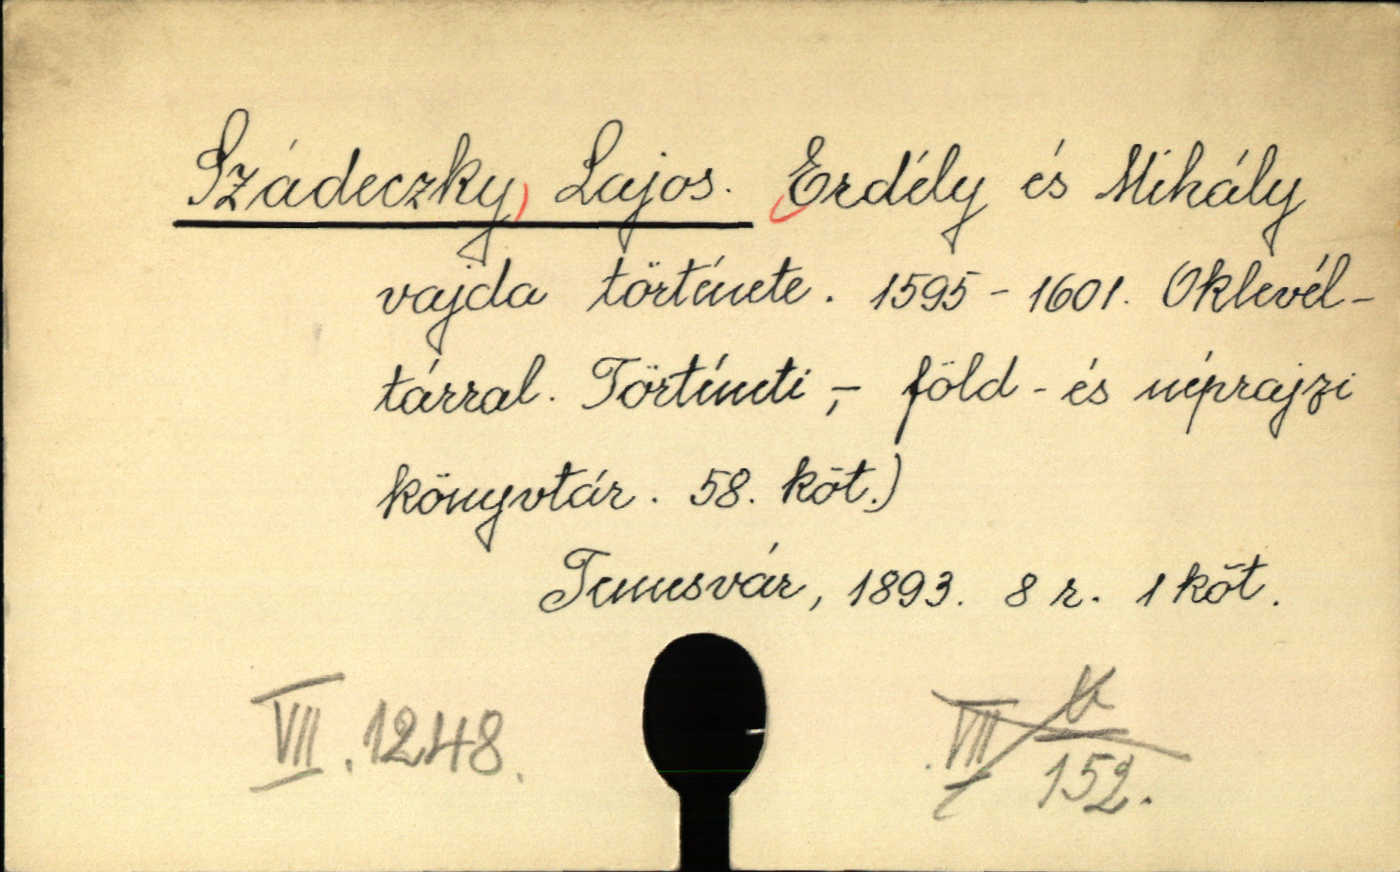 Szádeczky, Lajos. Erdély és Mihály
vajda története. 1595 - 1601. Oklevél-
tárral. Történeti,- föld - és néprajzi
könyvtár. 58. köt.)
Temesvár, 1893. 8 r. 1 köt.
VII. 1248.
VII
152.